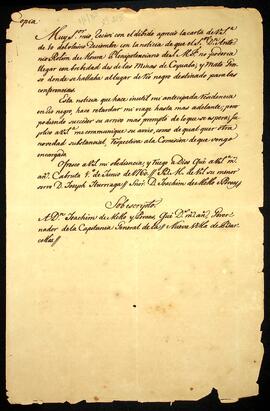 Copia
Muy S.or mio, Recivi con el devido aprecio la carta de V.S.a
de 10 del ultimo Diciembre con la noticia de que el S.or D.n Anto-
nio Rolim de Moura Plenipotenciario de S. M. no podria
llegar con brebedad desde las Minas de Cuyabá, y Mato Gros-
so donde se hallaba al lugar de Rio negro destinado para las
conferencias.
Esta noticia que hace inutil mi anticipada residencia
en Rio negro, hace retardar mi viage hasta mas adelante; pero
pudiendo suceder su arrivo mas prompto de lo que se espera, su-
plico a V.S.a me communique su aviso, como de qual quier otra
novedad substancial, respectiva a la Comision de que vengo
encargado.
Ofresco a V.S.a mi obediencia, y ruego a Dios Gu.e a V.S.a m.s
an.s Cabruta 1.º de Junio de 1760. B. L. M. de V.S. su menor
servo D. Joseph Yturriaga Snor. D. Joachim de Mello Povoas
Sobrescripto
A D.n Joachim de Mello y Povoas, Gu.e D.s m.s an.s Gover-
nador de la Capitania General de la Nueva Villa de Bar-
cellos